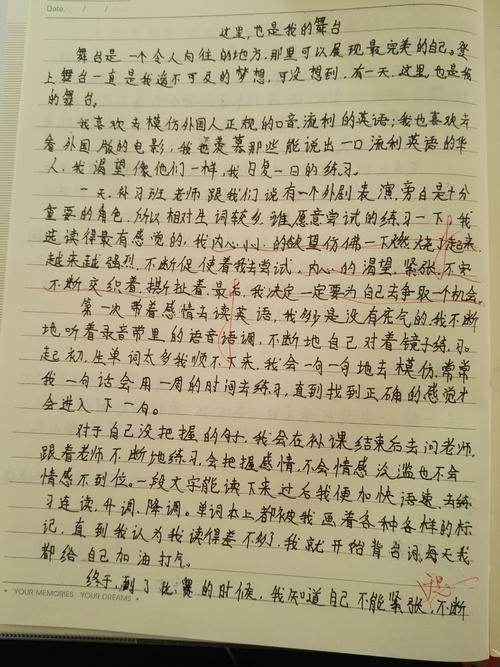 Date. / /
这里,也是我的舞台
舞台是一个令人向往的地方,那里可以展现最完美的自己。登
上舞台一直是我遥不可及的梦想,可没想到,有一天,这里,也是我
的舞台。
我喜欢去模仿外国人正规的口音,流利的英语;我也喜欢去
看外国版的电影,我也羡慕那些能说出一口流利英语的华
人,我渴望像他们一样,我日复一日的练习。
一天,补习班老师跟我们说有一个外剧表演,旁白是十分
重要的角色,所以相对生词较多,谁愿意尝试的练习一下,我
选读得最有感觉的,我内心小小的欲望仿佛一下燃烧了起来,
越来越强烈,不断促使着我去尝试,内心的渴望,紧张,不安
不断交织着,撕扯着,最后,我决定一定要为自己去争取一个机会。
第一次带着感情去读英语,我的声是没有底气的,我不断
地听着录音带里的语音语调,不断地自己对着镜子练习。
起初,生单词太多我顺不下来,我会一句一句地去模仿,常常
我一句话会用一周的时间去练习,直到找到正确的感觉才
会进入下一句。
对于自己没把握的句子,我会在补课结束后去问老师,
跟着老师不断地练习,会把握感情,不会情感泛滥也不会
情感不到位。一段文字能读下来过后我便加快语速,去练
习连读,升调,降调。单词本上都被我画着各种各样的标
记,直到我认为我读得差不多了,我就开始背台词,每天我
都给自己加油打气。
终于,到了比赛的时候,我知道自己不能紧张,不断
YOUR MEMORIES YOUR DREAMS